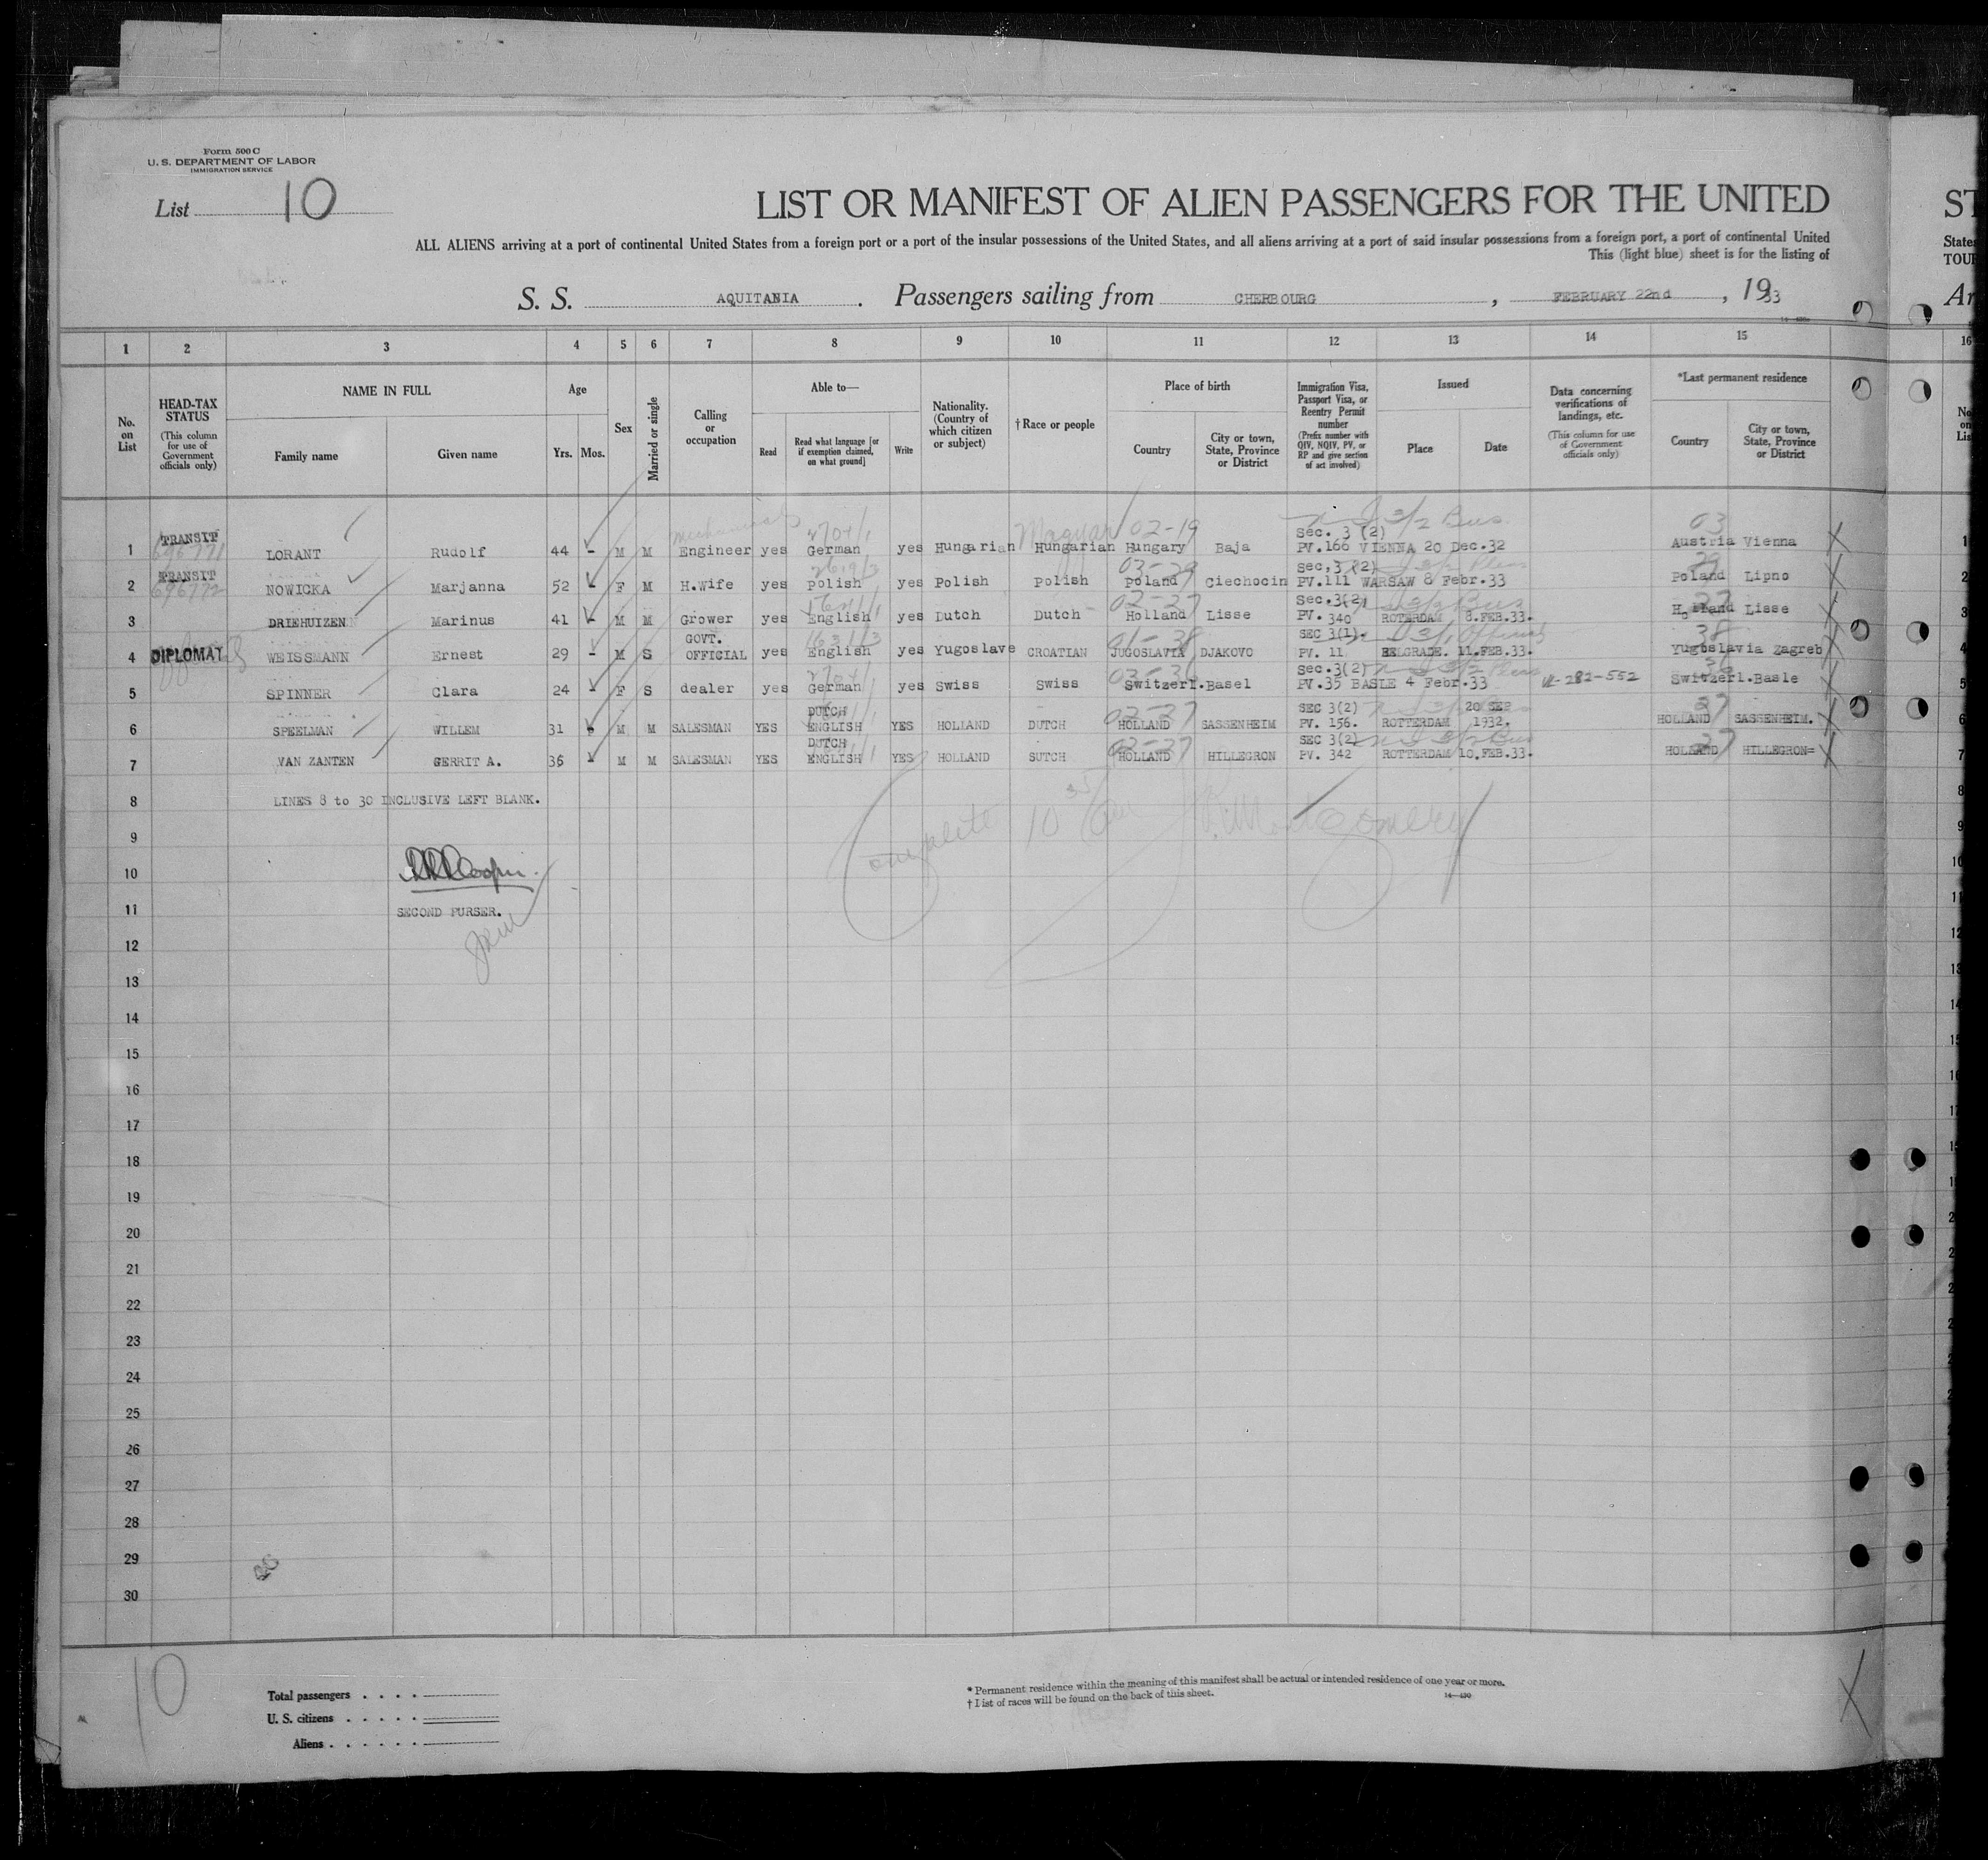 Form 500 C
U. S. DEPARTMENT OF LABOR
IMMIGRATION SERVICE
List 10
LIST OR MANIFEST OF ALIEN PASSENGERS FOR THE UNITED
ST
ALL ALIENS arriving at a port of continental United States from a foreign port or a port of the insular possessions of the United States, and all aliens arriving at a port of said insular possessions from a foreign port, a port of continental United
States
This (light blue) sheet is for the listing of
TOUR
S. S. AQUITANIA . Passengers sailing from CHERBOURG , FEBRUARY 22nd , 1933
Ar
1 2 3 4 5 6 7 8 9 10 11 12 13 14 15 16
No. on List
HEAD-TAX STATUS (This column for use of Government officials only)
NAME IN FULL
Family name
Given name
Age
Yrs. Mos.
Sex
Married or single
Calling or occupation
Able to—
Read
Read what language [or if exemption claimed, on what ground]
Write
Nationality. (Country of which citizen or subject)
† Race or people
Place of birth
Country
City or town, State, Province or District
Immigration Visa, Passport Visa, or Reentry Permit number (Prefix number with QIV, NQIV, PV, or RP and give section of act involved)
Issued
Place
Date
Data concerning verifications of landings, etc. (This column for use of Government officials only)
*Last permanent residence
Country
City or town, State, Province or District
mechanical 4704/1 Magyar 02-19 3/2 Bus 03
1 TRANSIT 696771 LORANT Rudolf 44 - M M Engineer yes German yes Hungarian Hungarian Hungary Baja Sec. 3 (2) PV.166 VIENNA 20 Dec.32 Austria Vienna
2 TRANSIT 696772 NOWICKA Marjanna 52 - F M H.Wife yes polish yes Polish Polish Poland Ciechocin Sec,3 (2) PV.111 WARSAW 8 Febr.33 Poland Lipno
3 DRIEHUIZEN Marinus 41 - M M Grower yes English yes Dutch Dutch Holland Lisse Sec.3(2) PV. 340 ROTERDAM 8.FEB.33. Holland Lisse
4 DIPLOMAT WEISSMANN Ernest 29 - M S GOVT. OFFICIAL yes English yes Yugoslave CROATIAN JUGOSLAVIA DJAKOVO SEC 3(1). PV. 11 BELGRADE. 11.FEB.33. Yugoslavia Zagreb
5 SPINNER Clara 24 - F S dealer yes German yes Swiss Swiss Switzerl. Basel Sec.3(2) PV.35 BASLE 4 Febr.33 Switzerl. Basle
6 SPEELMAN WILLEM 31 M M SALESMAN YES DUTCH ENGLISH YES HOLLAND DUTCH HOLLAND SASSENHEIM SEC 3(2) PV. 156. ROTTERDAM 20 SEP 1932. HOLLAND SASSENHEIM.
7 VAN ZANTEN GERRIT A. 36 - M M SALESMAN YES DUTCH ENGLISH YES HOLLAND SUTCH HOLLAND HILLEGRON SEC 3(2) PV. 342 ROTTERDAM 10.FEB.33. HOLLAND HILLEGRON=
8 LINES 8 to 30 INCLUSIVE LEFT BLANK.
Complete 10 Montgomery
9
10
11 SECOND PURSER.
12
13
14
15
16
17
18
19
20
21
22
23
24
25
26
27
28
29
30
10
Total passengers
U. S. citizens
Aliens
* Permanent residence within the meaning of this manifest shall be actual or intended residence of one year or more.
† List of races will be found on the back of this sheet.